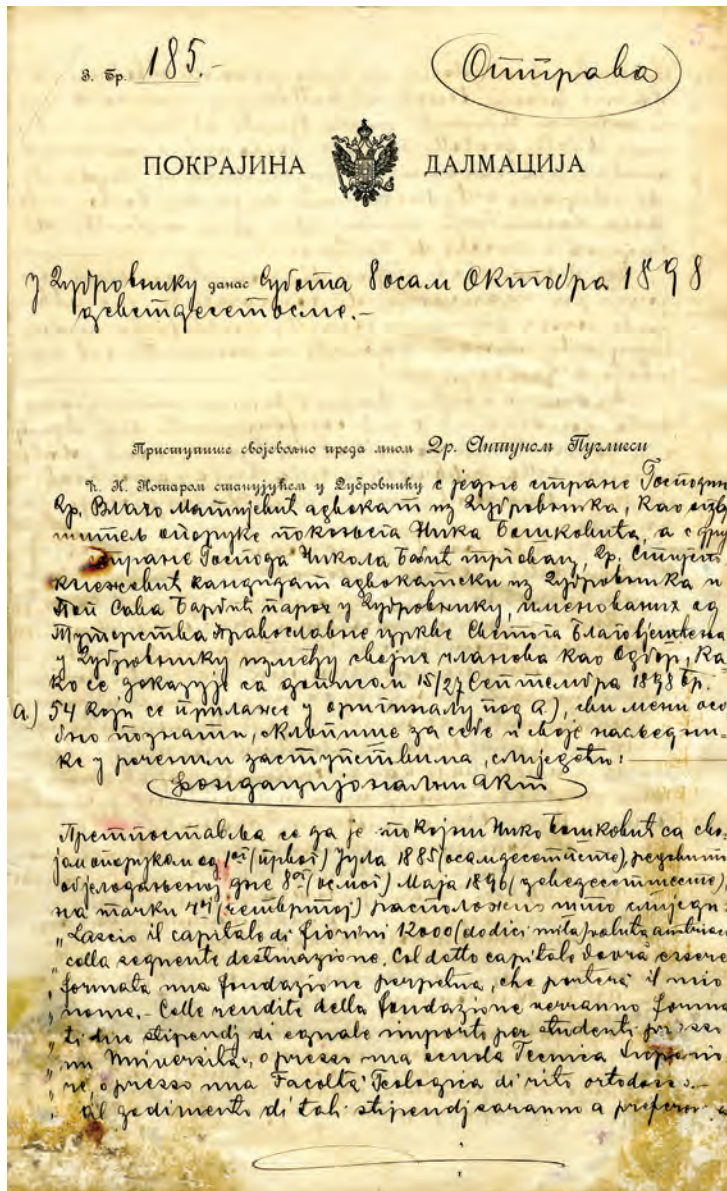 З. Бр. 185.-
Отправа
ПОКРАЈИНА ДАЛМАЦИЈА
У Дубровнику данас Субота 8 осам Октобра 1898
деветдесетосме.-
Приступише својевољно преда мном Др. Антуном Пуглиеси
Ћ. К. Нотаром станујућем у Дубровнику с једне стране Господин
Др. Влахо Матијевић адвокат из Дубровника, као изво
титељ опоруке покојнога Ника Бошковића, а с дру
стране Господа Никола Бабић трговац, Др. Стијепо
Кнежевић кандидат адвокатски из Дубровника и
Поп Сава Барбић парох у Дубровнику, именованих од
Туторства Православне цркве Светога Благовјештења
у Дубровнику између својих чланова као Одбор, ка
ко се доказује са дописом 15/27 Септембра 1898 Бр.
а) 54 који се прилаже у оригиналу под а), сви мени осо
бно познати, склопише за себе и своје насљедни-
ке у реченим заступствима, слиједећи:
Фондацијонални Акт
Претпоставља се да је покојни Нико Бошковић са сво
јом опоруком од 1ог (првог) Јула 1885 (осамдесетпете), редовито
објелодањеној дне 8ог (осмог) Маја 1896 (деведесетшесте),
на тачки 4ој (четвртој) расположио што слиједи:
„Lascio il capitale di fiorini 12000 (dodici mila) valuta austriaca
„colla seguente destinazione. Col detto capitale dovrà essere
„formata una fondazione perpetua, che porterà il mio
„nome.- Colle rendite della fondazione verranno forma
„ti due stipendj di eguale importo per studenti presso
„una Università, o presso una scuola Tecnica Superio
„re, o presso una Facoltà Teologica di rito ortodosso.-
„Al godimento di tali stipendj saranno a preferen